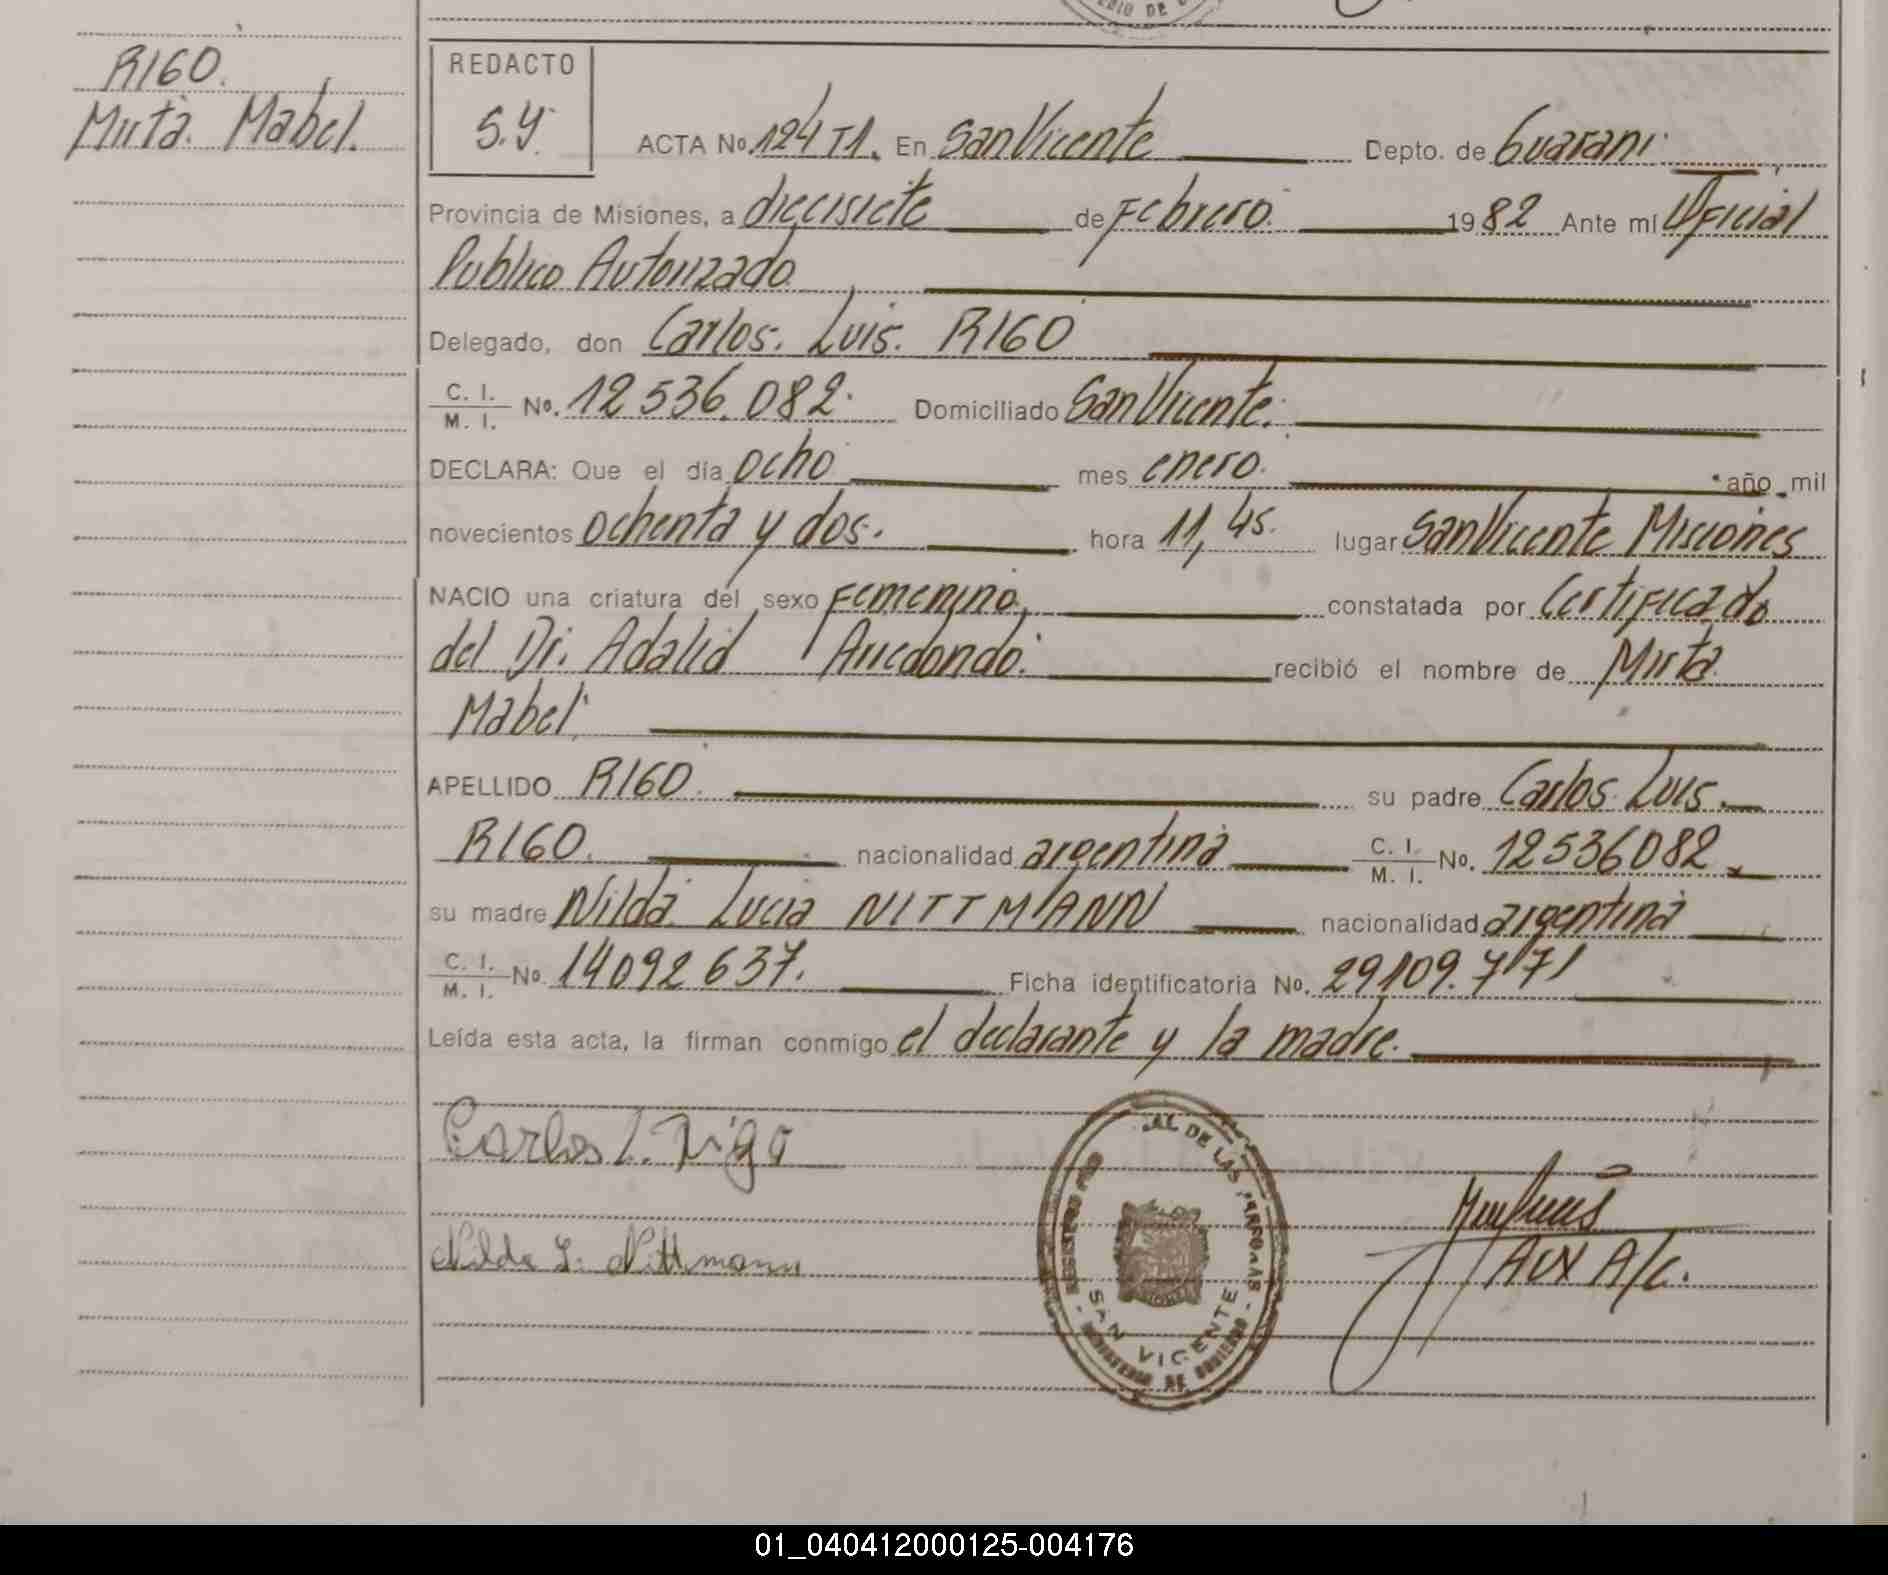 RIGO.
Mirta. Mabel.
REDACTO
S.Y.
ACTA No. 124 T1. En San Vicente Depto. de Guarani
Provincia de Misiones, a diecisiete de Febrero. 1982 Ante mí Oficial
Publico Autorizado
Delegado, don Carlos. Luis. RIGO
C. I. / M. I. No. 12536.082. Domiciliado San Vicente.
DECLARA: Que el día ocho mes enero. año mil
novecientos ochenta y dos. hora 11,45. lugar San Vicente Misiones
NACIO una criatura del sexo Femenino, constatada por Certificado
del Dr. Adalid Arredondo. recibió el nombre de Mirta
Mabel.
APELLIDO RIGO. su padre Carlos Luis.
RIGO. nacionalidad argentina C. I. / M. I. No. 12536082.
su madre Nilda Lucia NITTMANN nacionalidad argentina
C. I. / M. I. No. 14092637. Ficha identificatoria No. 29109.771
Leída esta acta, la firman conmigo el declarante y la madre.
Carlos L. Rigo
Nilda L. Nittmann
AL DE LAS PERSONAS
SAN VICENTE
MINISTERIO DE GOBIERNO
AUX A/C.
01_040412000125-004176